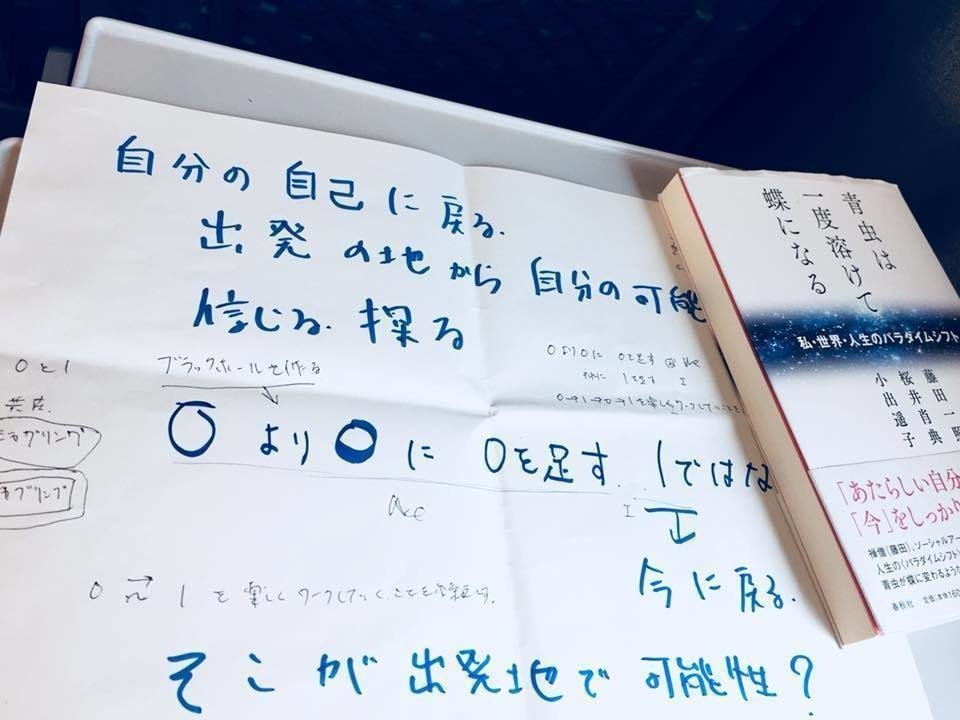 自分の自己に戻る.
出発の地から自分の可能
信じる. 探る
0と1
共存.
ブラックホールを作る
0より0に 0を足す
1を足す I
〇より〇に 0を足す. 1ではな
I
今に戻る.
0 1を楽しくワークしていくことを
そこが出発地で可能性?
青虫は
一度溶けて
蝶になる
私・世界・人生のパラダイムシフト
藤田一照
桜井肖典
小出遥子
「あたらしい自分
「今」をしっかり
禅僧(藤田)、ソーシャルアー
人生の〈パラダイムシフト〉
青虫が蝶に変わるような
春秋社 定価(本体160